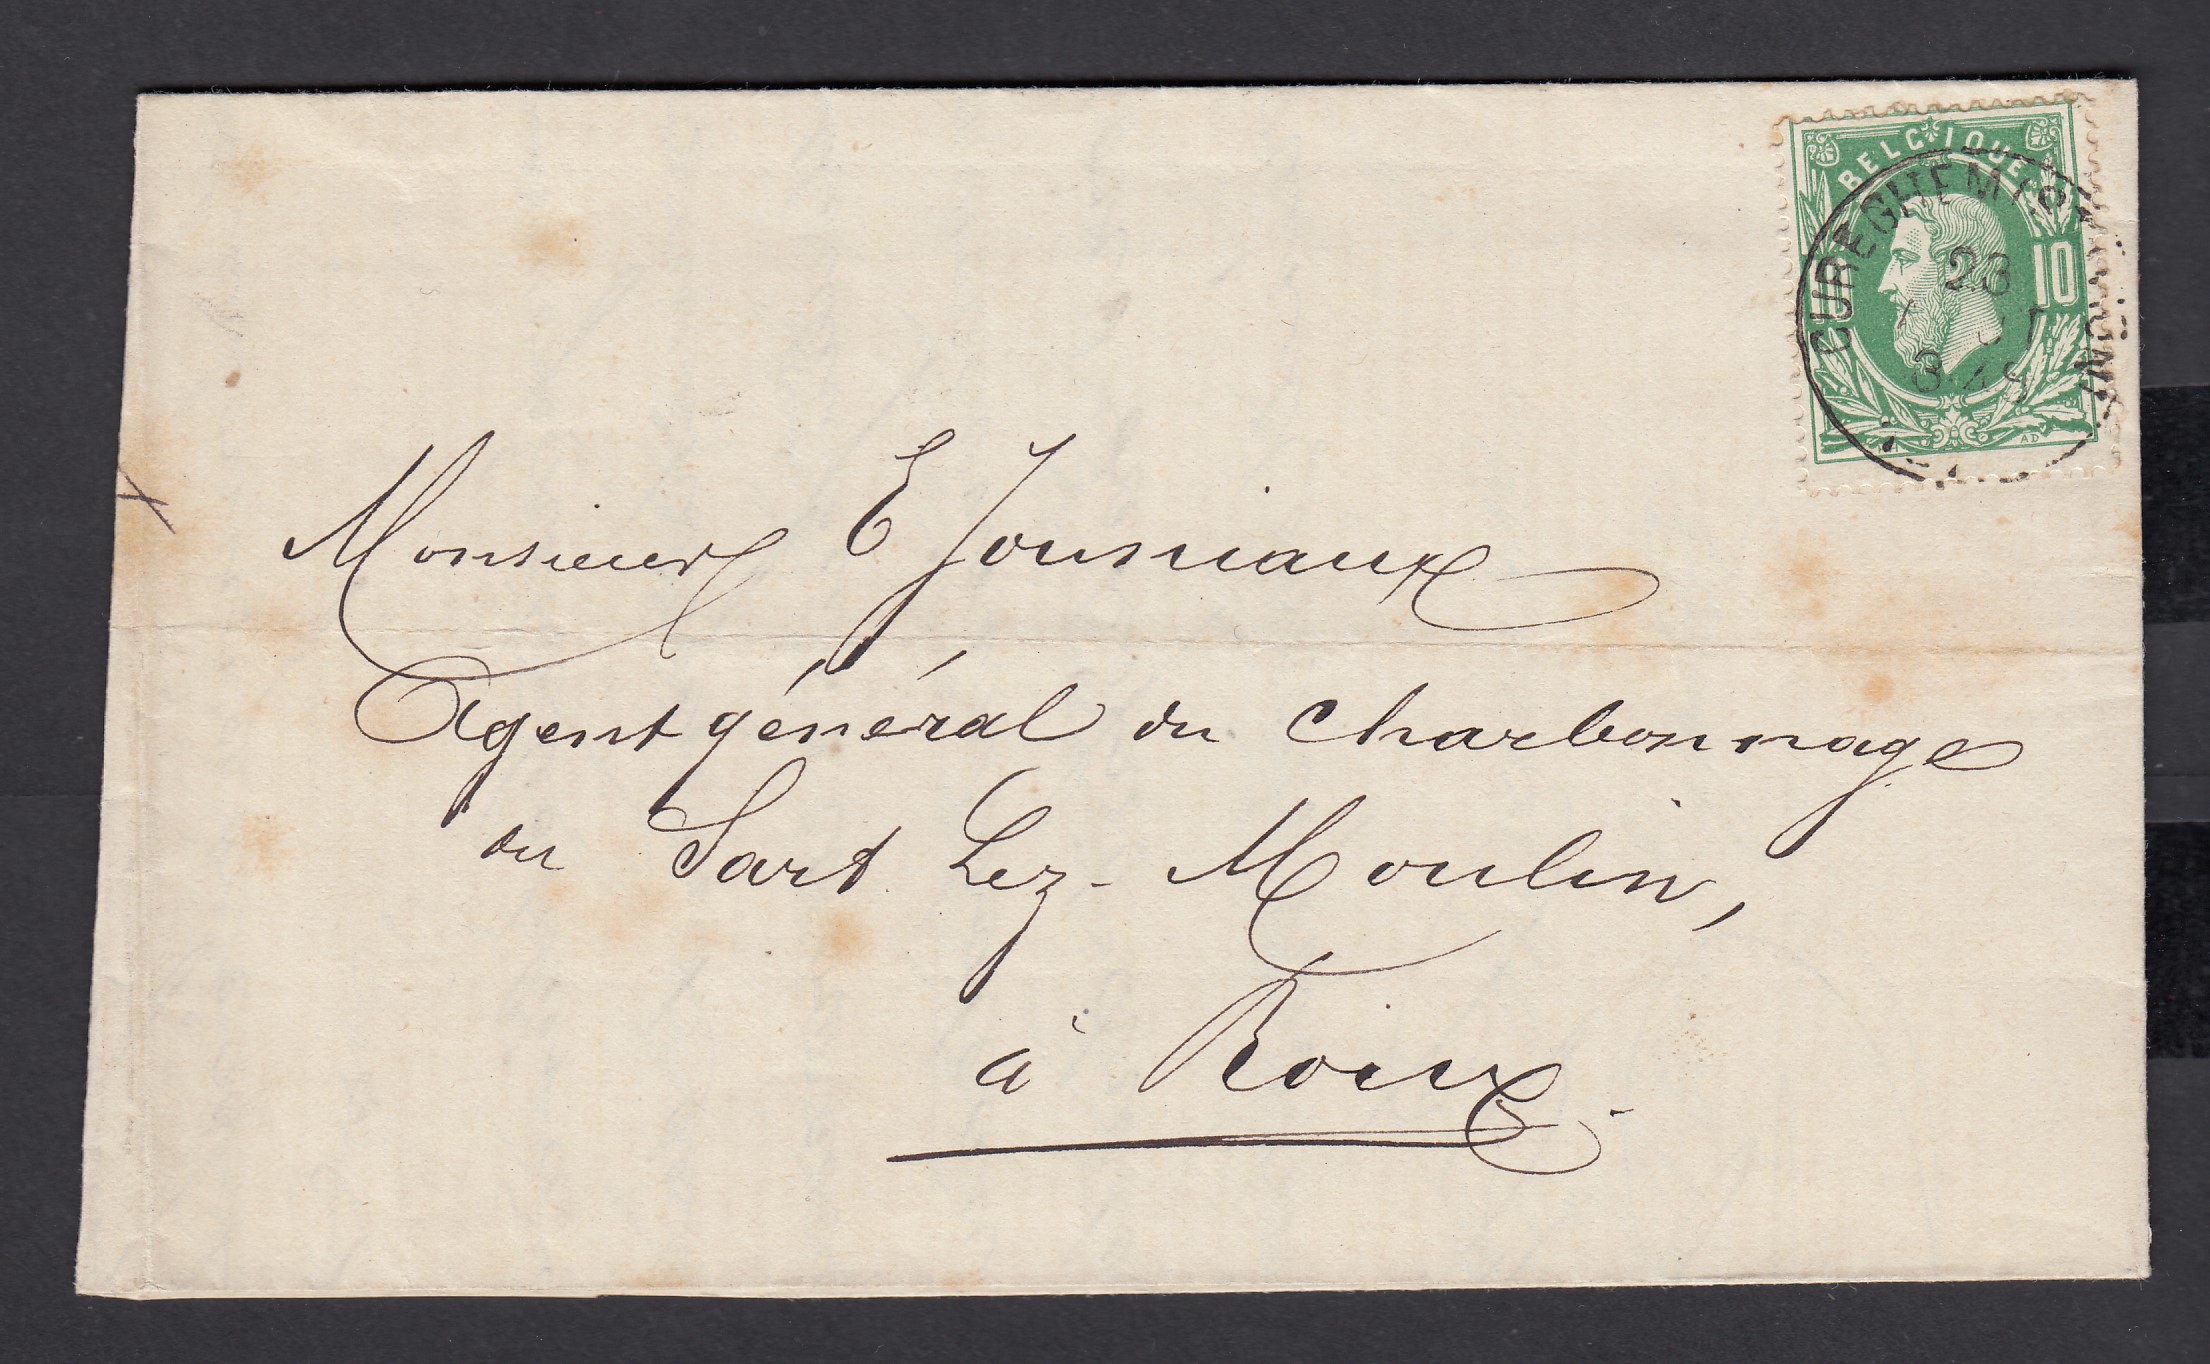 BELGIQUE
10
CUREGHEM
23
Monsieur E Jousniaux
Agent général du Charbonnage
du Sart Lez-Moulin,
à Roux.